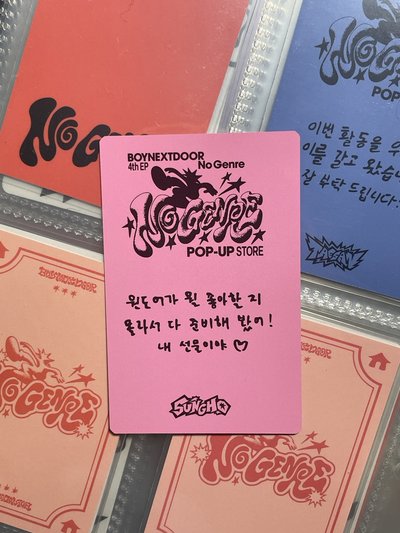 NO GENRE
NO GENRE
POP-UP
이번 활동을 우
이를 갈고 왔습니다
잘 부탁 드립니다!
BOYNEXTDOOR
4th EP No Genre
NO GENRE
POP-UP STORE
원도어가 뭘 좋아할 지
몰라서 다 준비해 봤어!
내 선물이야 ♡
SUNGHO
BOYNEXTDOOR
NO GENRE
NO GENRE